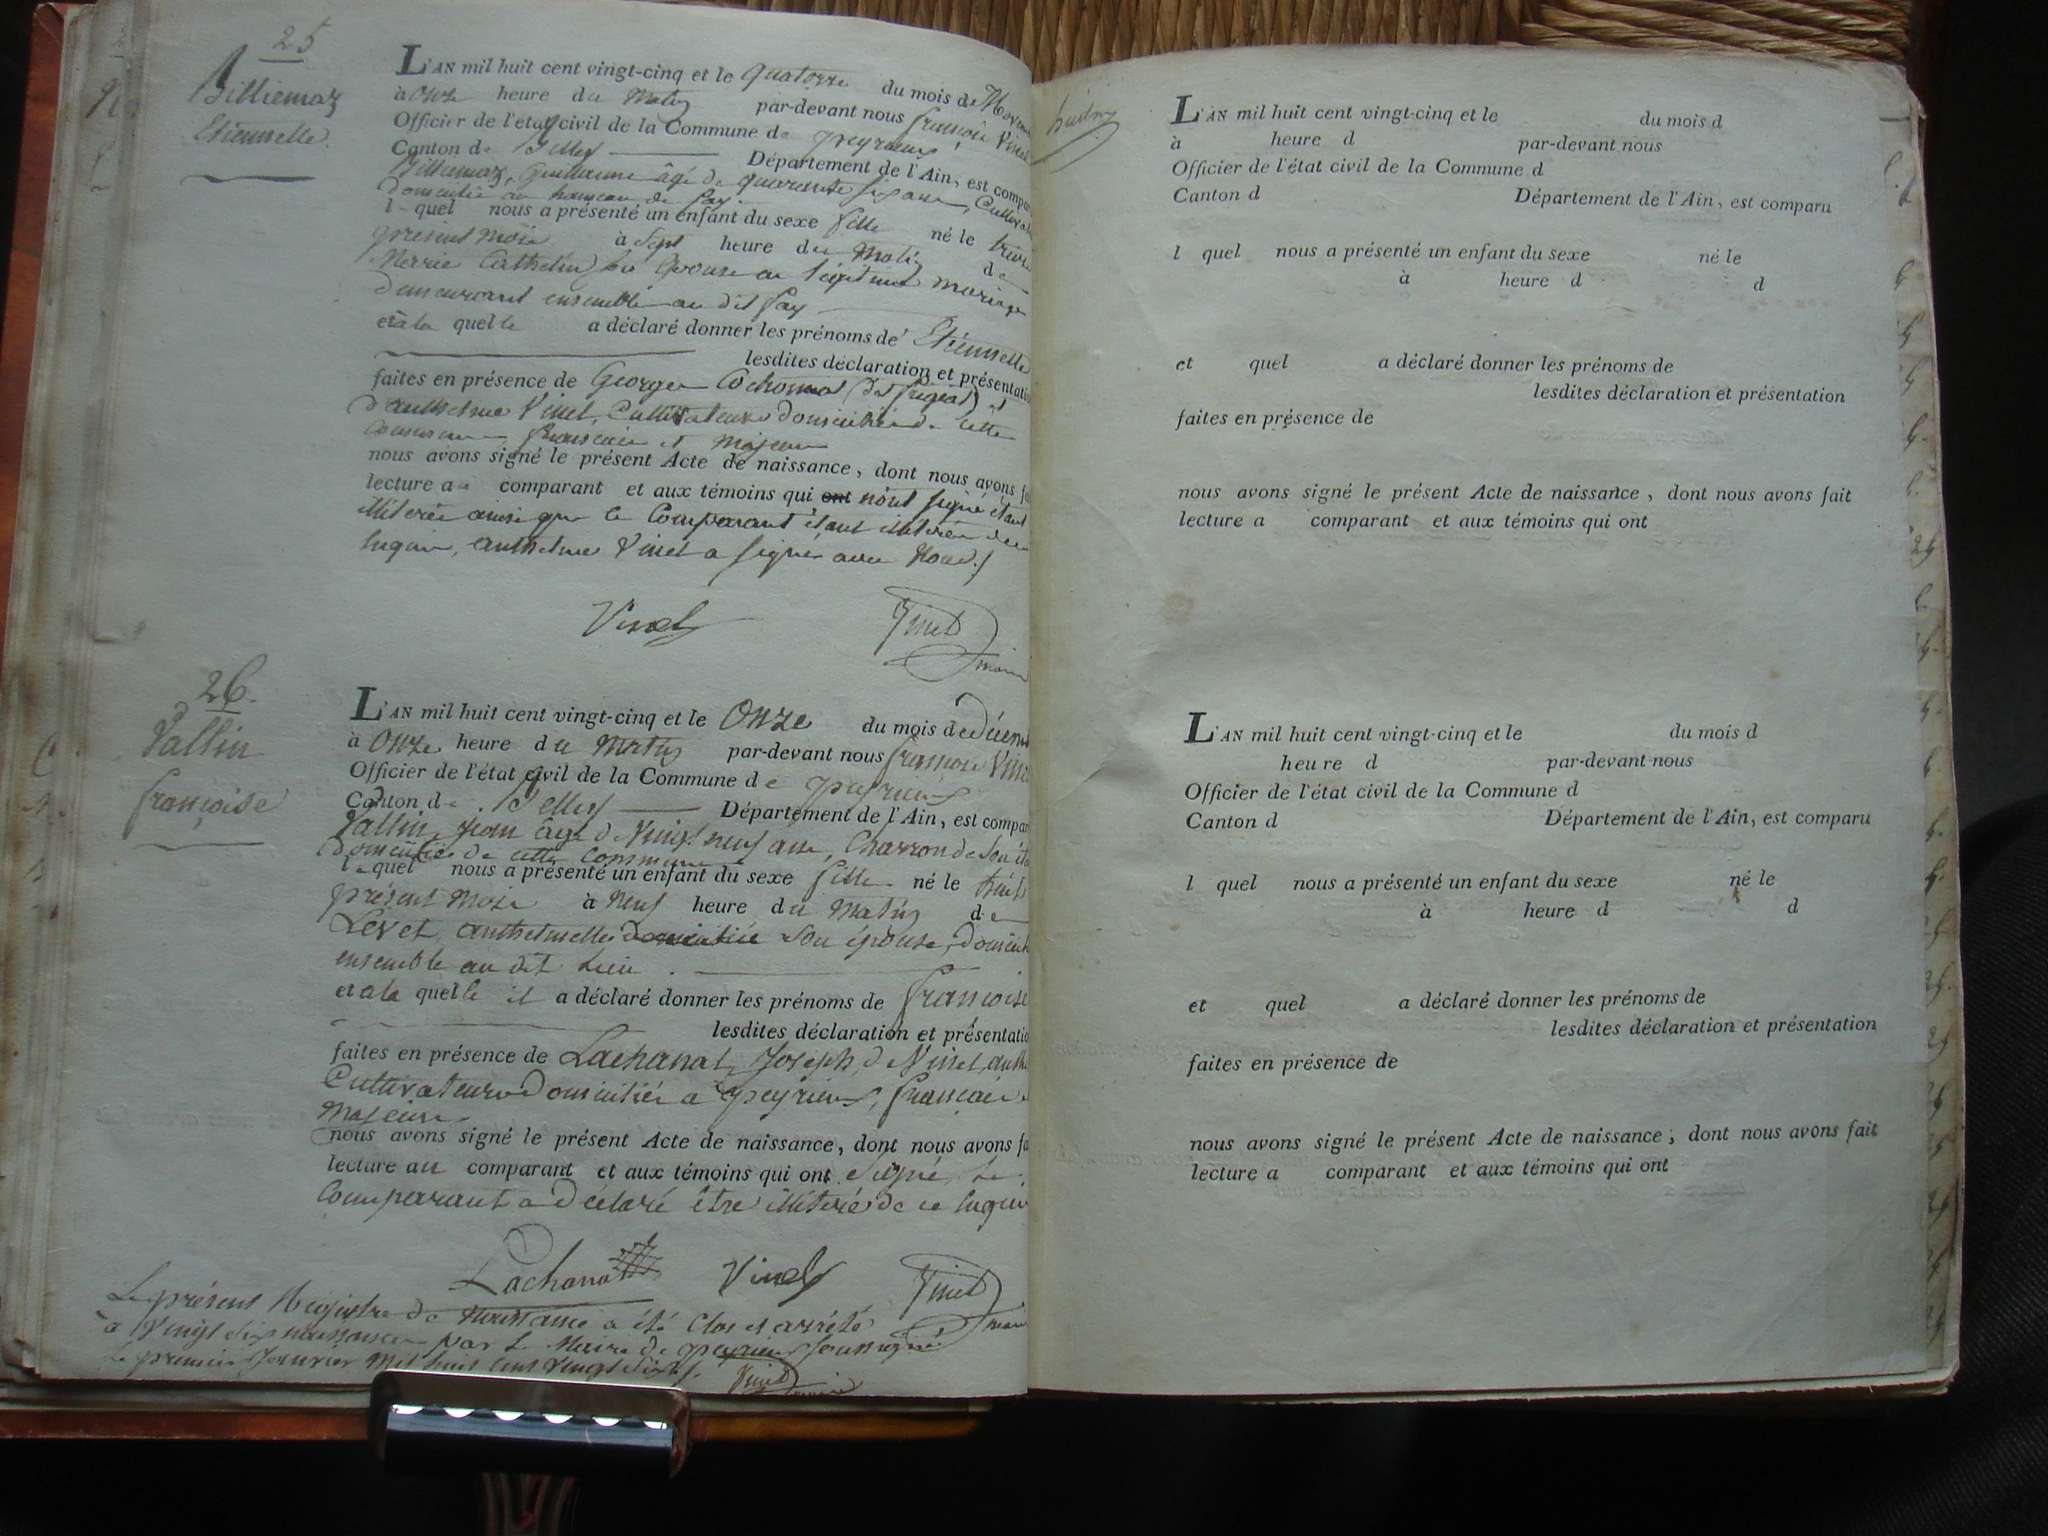 25
Billiemaz
Etiennette
L'AN mil huit cent vingt-cinq et le quatorze du mois de
à onze heure du Matin par-devant nous françois Vinet
Officier de l'état civil de la Commune de peyrieux
Canton de Belley Département de l'Ain, est compar
Billiemaz, Guillaume âgé de quarante six ans, Cultivat
domicilié au hameau de fay
l- quel nous a présenté un enfant du sexe fille né le
présent mois à sept heure du Matin de
Marie Cathelin son épouse en légitime mariage
demeurant ensemble au dit fay
et à la quelle a déclaré donner les prénoms de Etiennette
lesdites déclaration et présentatio
faites en présence de George Cochonat (dit frigeat) et
d'anthelme Vinet, Cultivateurs domiciliés de cette
commune, français et majeurs
nous avons signé le présent Acte de naissance, dont nous avons fa
lecture au comparant et aux témoins qui ont n'ont signé étant
illiterés ainsi que le Comparant étant illiterés de ce
enquis, anthelme Vinet a signé avec Nous./
Vinet Vinet
maire
26.
Vallin
françoise
L'AN mil huit cent vingt-cinq et le Onze du mois de décemb
à Onze heure du Matin par-devant nous françois Vinet
Officier de l'état civil de la Commune de peyrieux
Canton de Belley Département de l'Ain, est compar
Vallin, Jean âgé de Vingt neuf ans, Charron de son éta
domicilié de cette commune
le quel nous a présenté un enfant du sexe fille né le huit
présent Mois à Neuf heure du Matin de
Levet, anthelmette domiciliée son épouse, domicili
ensemble au dit Lieu.
et a la quelle il a déclaré donner les prénoms de françoise
lesdites déclaration et présentatio
faites en présence de Lachanat, Joseph, & Vinet, anth
Cultivateurs domiciliés a peyrieux, français &
Majeurs
nous avons signé le présent Acte de naissance, dont nous avons fa
lecture au comparant et aux témoins qui ont signé. Le
Comparant a déclaré être illiteré de ce enquis
Lachanat Vinet Vinet
maire
Le présent Registre de Naissance a été Clos et arrêté
à Vingt six naissances par le Maire de peyrieux soussigné
Le premier Janvier Mil huit cent vingt six./.
Vinet
maire
L'AN mil huit cent vingt-cinq et le du mois d
à heure d par-devant nous
Officier de l'état civil de la Commune d
Canton d Département de l'Ain, est comparu
l quel nous a présenté un enfant du sexe né le
à heure d d
et quel a déclaré donner les prénoms de
lesdites déclaration et présentation
faites en présence de
nous avons signé le présent Acte de naissance, dont nous avons fait
lecture a comparant et aux témoins qui ont
L'AN mil huit cent vingt-cinq et le du mois d
heure d par-devant nous
Officier de l'état civil de la Commune d
Canton d Département de l'Ain, est comparu
l quel nous a présenté un enfant du sexe né le
à heure d d
et quel a déclaré donner les prénoms de
lesdites déclaration et présentation
faites en présence de
nous avons signé le présent Acte de naissance, dont nous avons fait
lecture a comparant et aux témoins qui ont